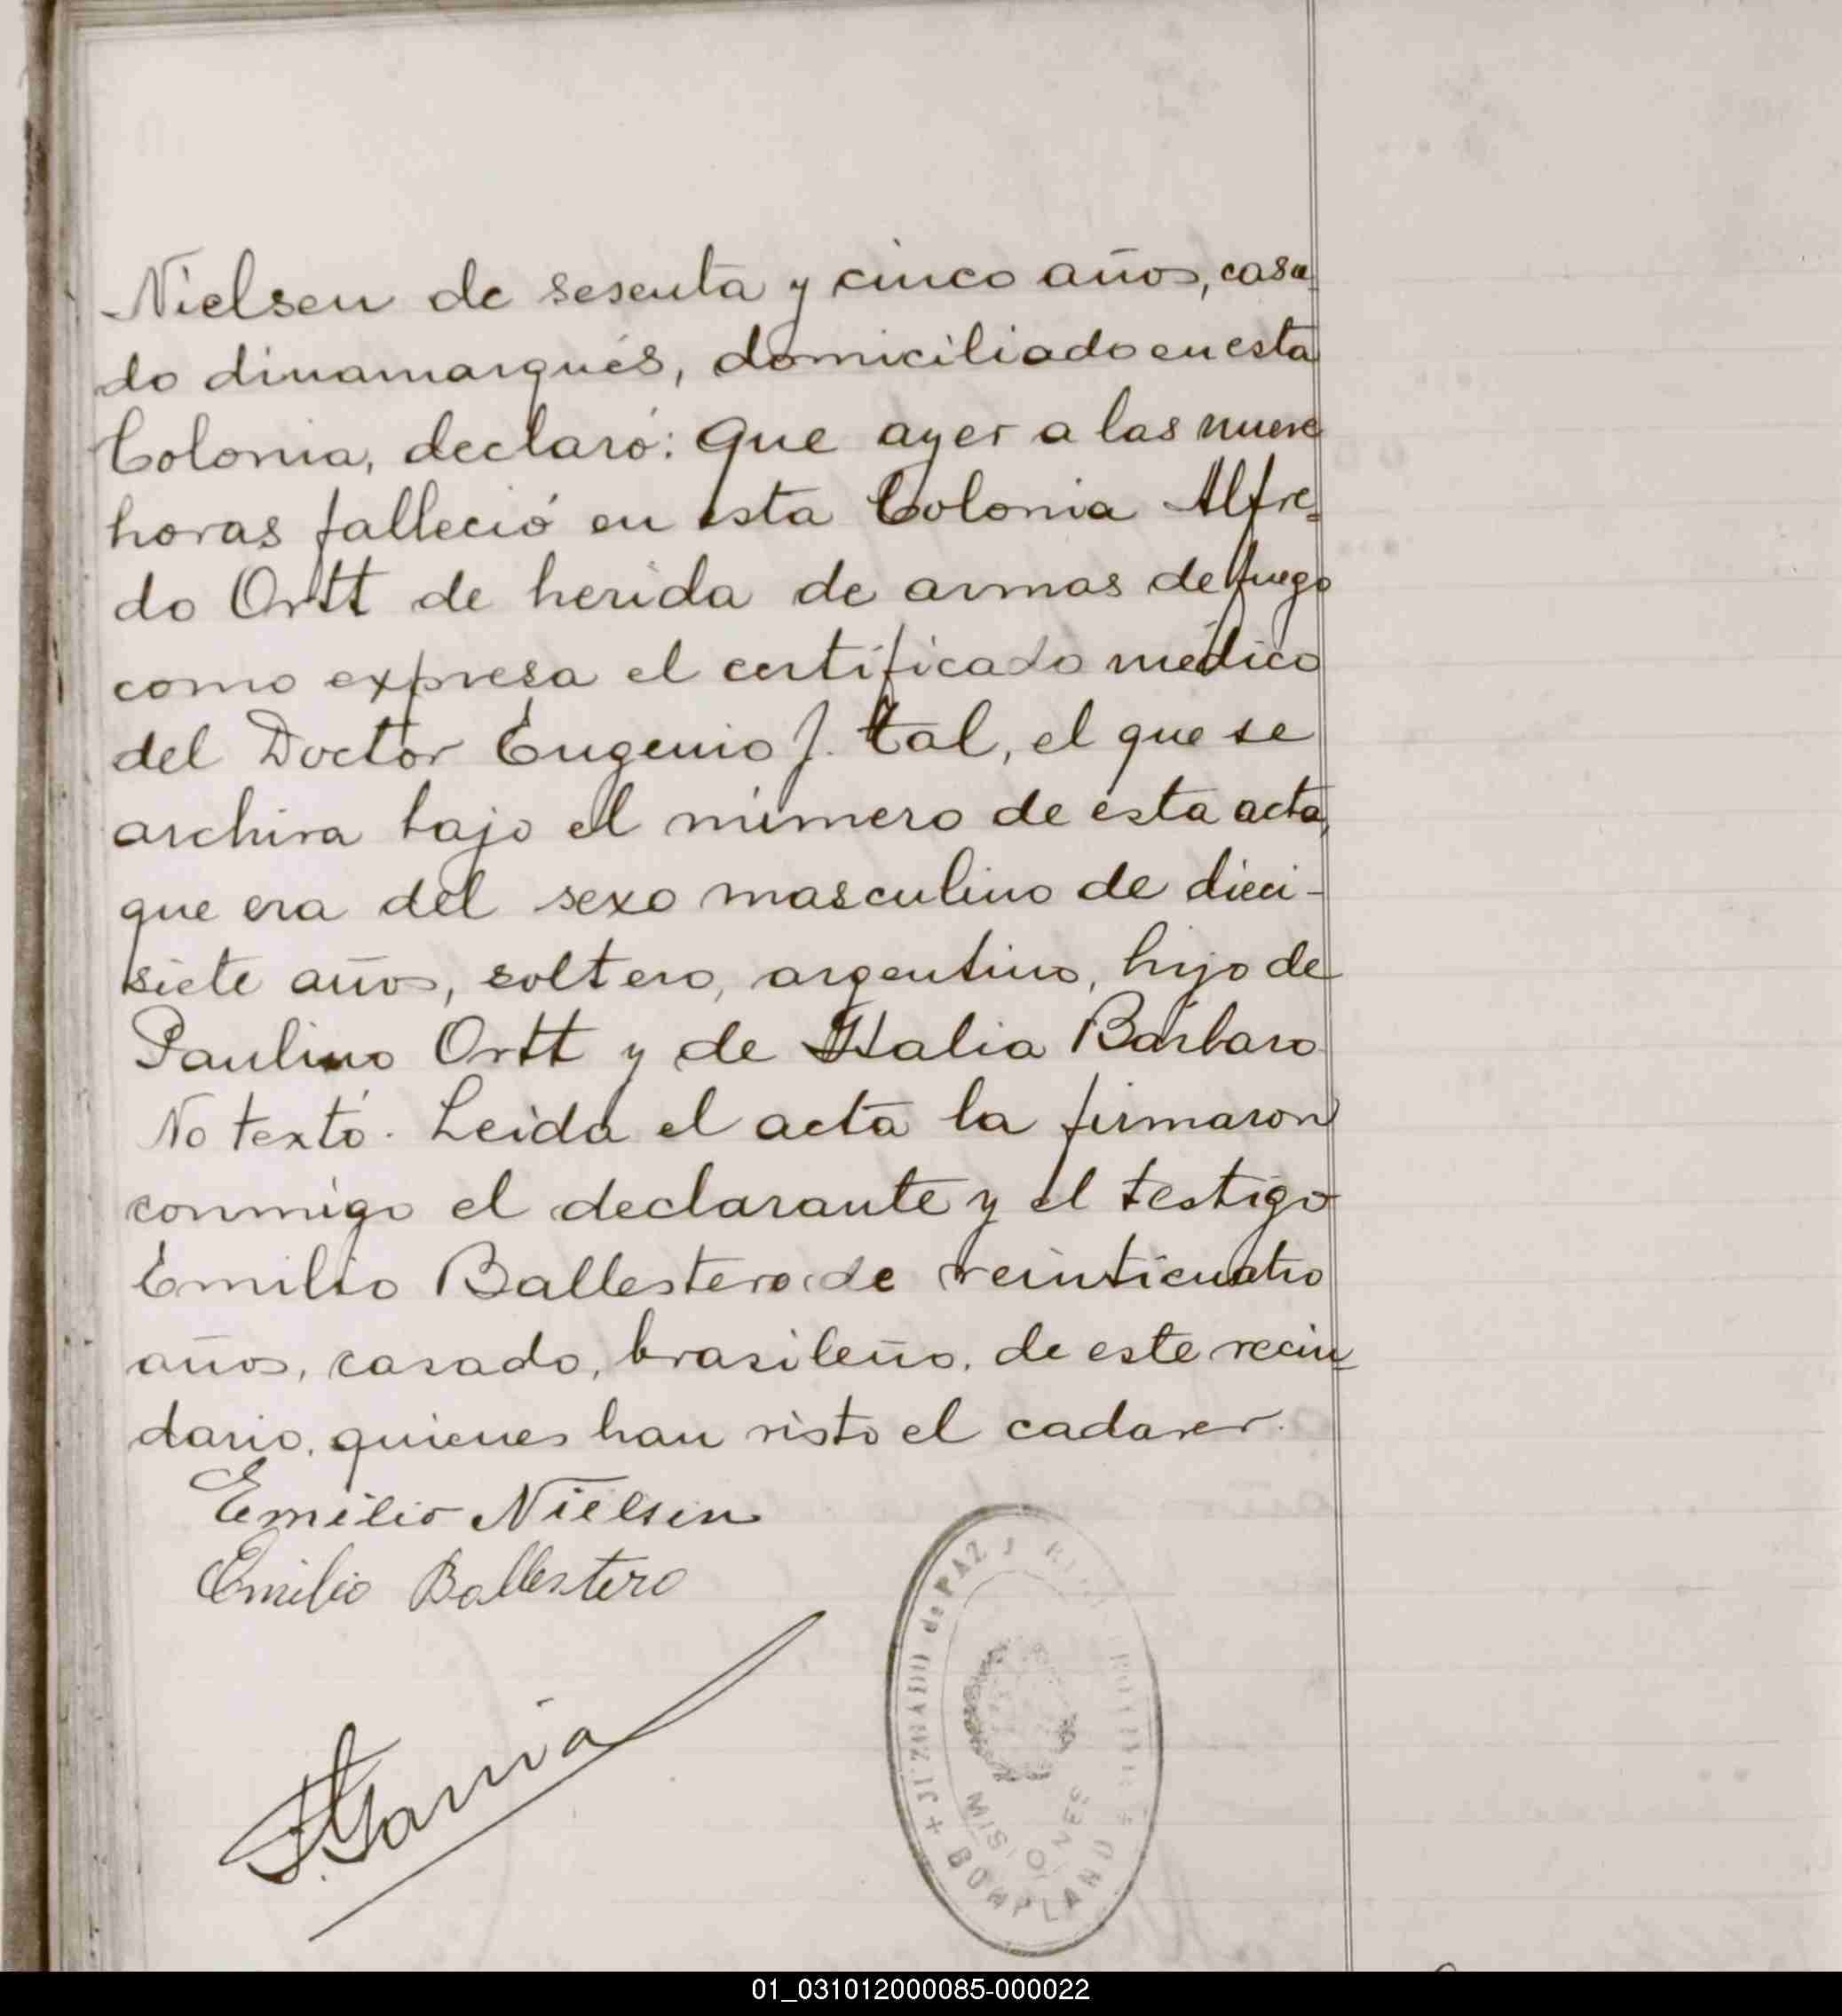 Nielsen de sesenta y cinco años, casa-
do dinamarqués, domiciliado en esta
Colonia, declaró: Que ayer a las nueve
horas falleció en esta Colonia Alfre-
do Ortt de herida de armas de fuego
como expresa el certificado médico
del Doctor Eugenio J. Tal, el que se
archiva bajo el número de esta acta,
que era del sexo masculino de dieci-
siete años, soltero, argentino, hijo de
Paulino Ortt y de Italia Bárbaro
No textó. Leida el acta la firmaron
conmigo el declarante y el testigo
Emilio Ballestero de veinticuatro
años, casado, brasileño, de este vecin-
dario, quienes han visto el cadaver.
Emilio Nielsen
Emilio Ballestero
JUZGADO de PAZ y
MISIONES
BONPLAND
01_031012000085-000022